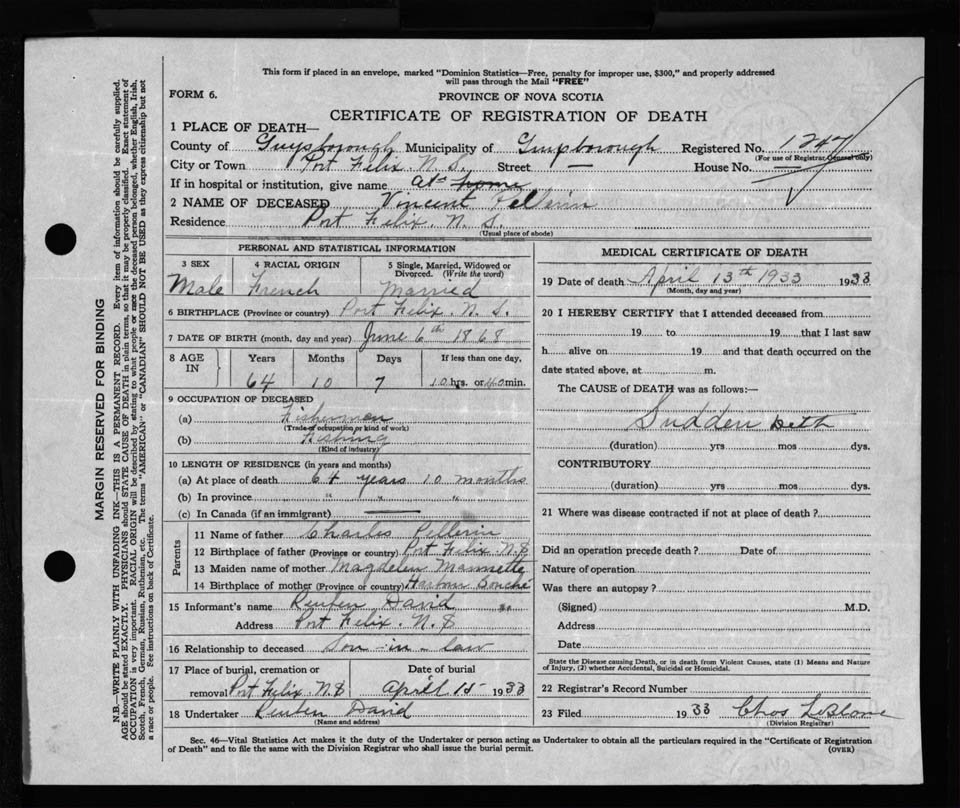 This form if placed in an envelope, marked "Dominion Statistics—Free, penalty for improper use, $300," and properly addressed
will pass through the Mail "FREE"
FORM 6.
PROVINCE OF NOVA SCOTIA
CERTIFICATE OF REGISTRATION OF DEATH
1 PLACE OF DEATH—
County of Guysborough Municipality of Guysborough Registered No. 1247
(For use of Registrar General only)
City or Town Port Felix. N. S. Street — House No. —
If in hospital or institution, give name at home
2 NAME OF DECEASED Vincent Pellerin
Residence Port Felix. N. S.
(Usual place of abode)
PERSONAL AND STATISTICAL INFORMATION
3 SEX
Male
4 RACIAL ORIGIN
French
5 Single, Married, Widowed or
Divorced. (Write the word)
Married
6 BIRTHPLACE (Province or country) Port Felix. N. S.
7 DATE OF BIRTH (month, day and year) June 6th 1868
8 AGE IN
Years Months Days If less than one day,
64 10 7 10 hrs. or 40 min.
9 OCCUPATION OF DECEASED
(a) Fisherman
(Trade of occupation or kind of work)
(b) Fishing
(Kind of industry)
10 LENGTH OF RESIDENCE (in years and months)
(a) At place of death 64 years 10 months
(b) In province " " "
(c) In Canada (if an immigrant) —
Parents
11 Name of father Charles Pellerin
12 Birthplace of father (Province or country) Port Felix N.S
13 Maiden name of mother Magdelen Mannette
14 Birthplace of mother (Province or country) Harbour Bouché
15 Informant's name Reuben David
Address Port Felix. N.S
16 Relationship to deceased Son-in-law
17 Place of burial, cremation or Date of burial
removal Port Felix N.S April 15 1933
18 Undertaker Reuben David
(Name and address)
MEDICAL CERTIFICATE OF DEATH
19 Date of death April 13th 1933 1933
(Month, day and year)
20 I HEREBY CERTIFY that I attended deceased from
19 to 19 that I last saw
h alive on 19 and that death occurred on the
date stated above, at m.
The CAUSE of DEATH was as follows:—
Sudden Deth
(duration) yrs mos dys.
CONTRIBUTORY
(duration) yrs mos dys.
21 Where was disease contracted if not at place of death?
Did an operation precede death? Date of
Nature of operation
Was there an autopsy?
(Signed) M.D.
Address
Date
State the Disease causing Death, or in death from Violent Causes, state (1) Means and Nature
of Injury, (2) whether Accidental, Suicidal or Homicidal.
22 Registrar's Record Number
23 Filed 1933 Chas LeBlanc
(Division Registrar)
Sec. 46—Vital Statistics Act makes it the duty of the Undertaker or person acting as Undertaker to obtain all the particulars required in the "Certificate of Registration
of Death" and to file the same with the Division Registrar who shall issue the burial permit.
(OVER)
MARGIN RESERVED FOR BINDING
N.B.—WRITE PLAINLY WITH UNFADING INK—THIS IS A PERMANENT RECORD. Every item of information should be carefully supplied.
AGE should be stated EXACTLY. PHYSICIANS should STATE CAUSE OF DEATH in plain terms, so that it may be properly classified. Exact statement of
OCCUPATION is very important. RACIAL ORIGIN will be described by stating to what people or race the deceased person belonged, whether English, Irish,
Scotch, French, German, Russian, Ruthenian, etc. The terms "AMERICAN" or "CANADIAN" SHOULD NOT BE USED as they express citizenship but not
a race or people. See instructions on back of Certificate.